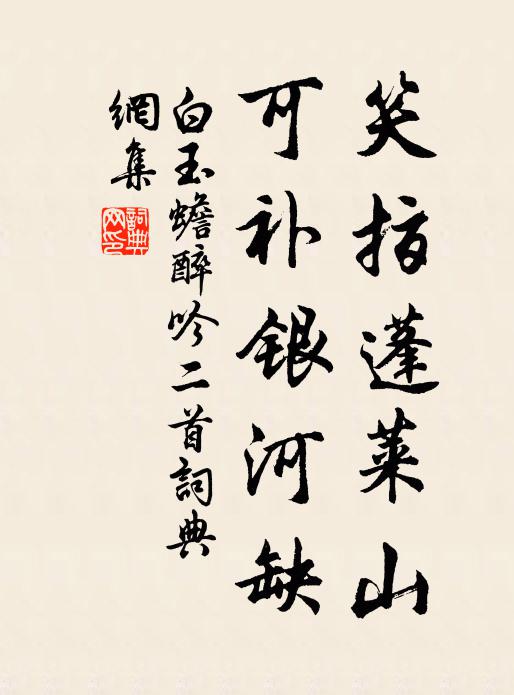 笑指蓬莱山
可补银河缺
白玉蟾醉吟二首詞典
網集
詞典網印